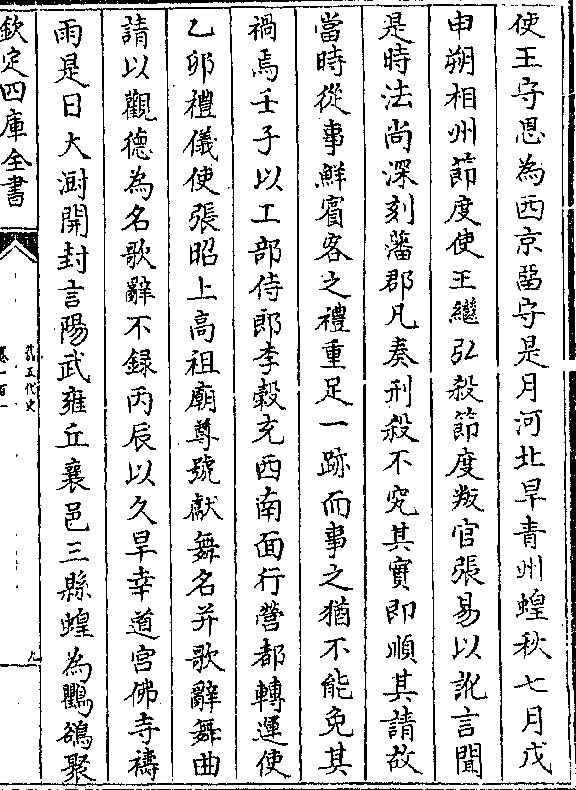 使王守恩為西京留守是月河北旱青州蝗秋七月戊
申朔相州節度使王繼弘殺節度叛官張易以訛言聞
是時法尚深刻藩郡凡奏刑殺不究其實即順其請故
當時從事鮮賓客之禮重足一跡而事之猶不能免其
禍焉壬子以工部侍郎李穀充西南面行營都轉運使
乙卯禮儀使張昭上高祖廟尊號獻舞名并歌辭舞曲
請以觀德為名歌辭不録丙辰以久旱幸道宮佛寺禱
雨是日大澍開封言陽武雍丘襄邑三縣蝗為鸜鵒聚
欽定四庫全書
舊五代史
卷一百一
九